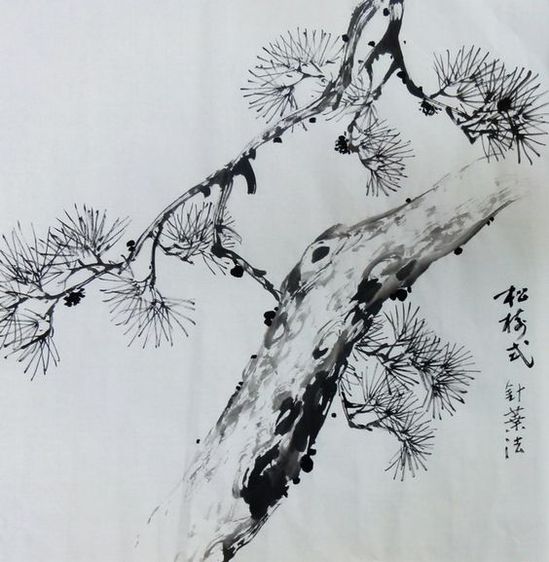 松树式
針葉法